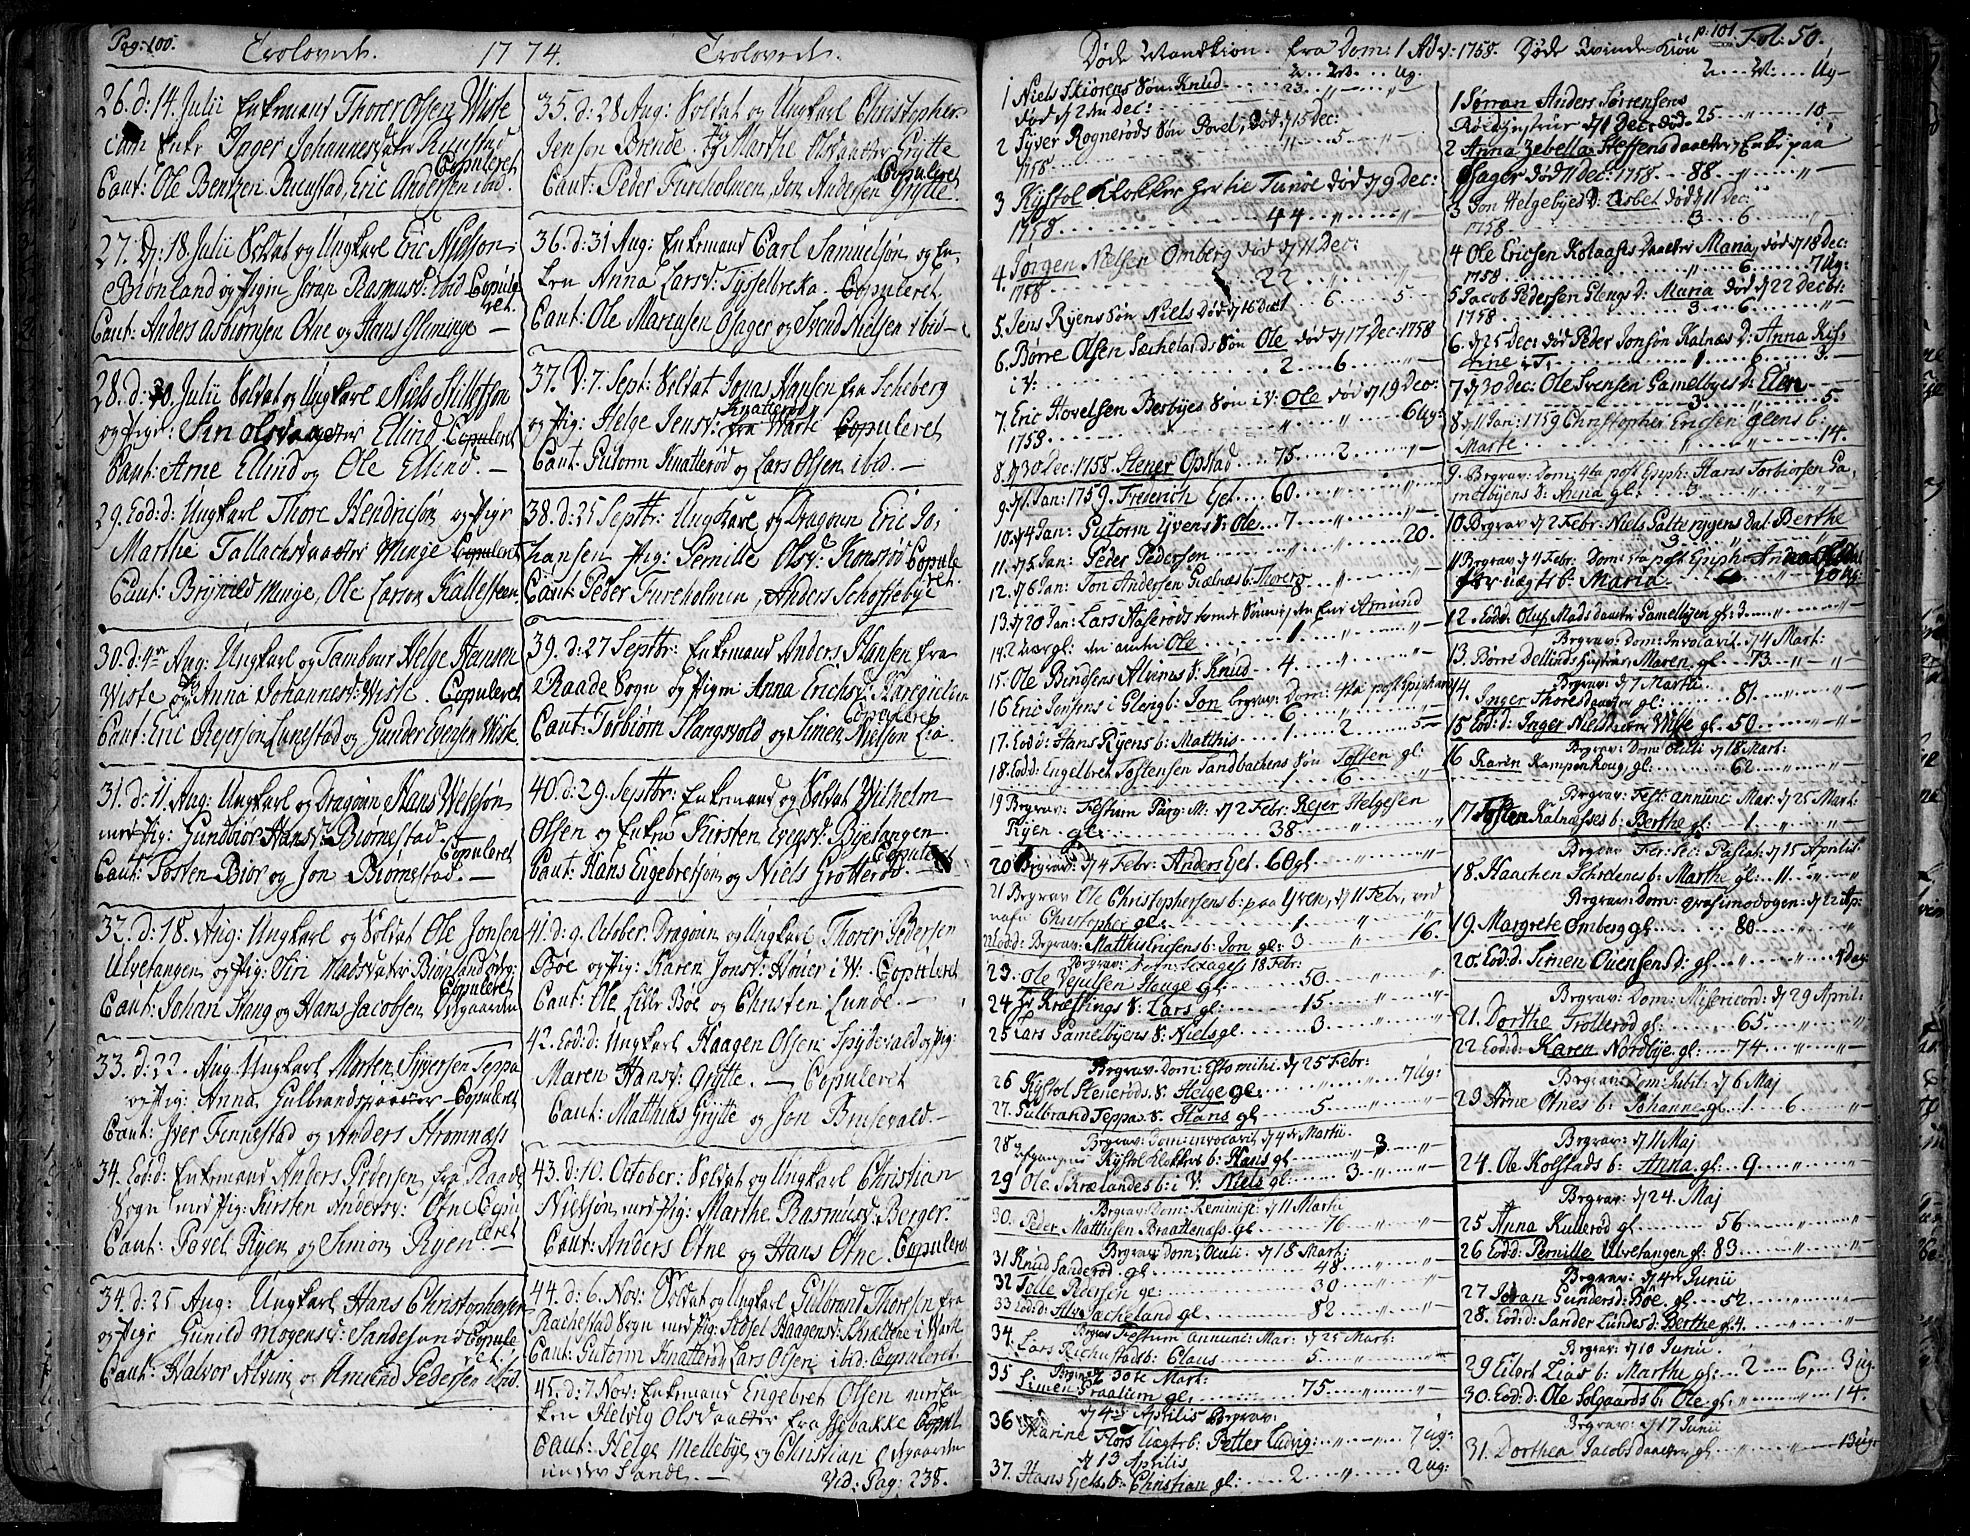 Pag: 100.
Trolovede. 1774. Trolovede.
26. d: 14. Julii Enkemand Thorer Olsen Wiste
Enke Inger Johannesdatter Ruustad
Copuleret
Caut: Ole Bentzen Ruustad, Eric Andersen ibid.
27. D: 18. Julii Soldat og Ungkarl Eric Nielsen
Biønland og Pigen Rasmusd: ibid Copule
ret.
Caut: Anders Asbiørnsen Otne og Hans Gleminge —
28. d: 20. Julii Soldat og Ungkarl Niels
og Pige: Siri Olsdaatter Ellind Copuleret
Caut: Arne Ellind og Ole Ellind. —
29. Eod: d: Ungkarl Thore Hendricsøn og Pige
Marthe Tallachsdaatter Minge Copuleret
Caut: Brynild Minge, Ole Larsen Kallesteen.
30. d: 4de Aug: Ungkarl og Tambour Helge Hansen
Wiste og Anna Johannesd: Wiste. Copuleret
Caut: Eric Rejersøn Lunestad og Gunder Evensen Wiste
31. d: 11. Aug: Ungkarl og Dragoun Hans
med Pig: Gundbiør Hansd: Biørnestad. —
Copuleret
Caut: Tosten Biør og Jon Biørnestad. —
32. d: 18. Aug: Ungkarl og Soldat Ole Jensen
Ulvetangen og Pig: Siri Madsdatter Biørnland
Copuleret
Caut: Johan Haug og Hans Jacobsen Ovsgaarden
33. d: 22. Aug Ungkarl Morten Syversen Teppa
og Pig: Anna Gulbrandsdaatter — Copuleret
Caut: Iver Tennestad og Anders Strømnæss
34. Eod: d: Enkemand Anders Pedersen fra Raade
Sogn med Pig: Kirsten Andersd: Otne Copu
leret
Caut: Povel Ryen og Simon Ryen.
34. d: 25 Aug: Ungkarl Hans Christophersen
og Pige Gunild Mogensd: Sandesund Copule
ret
Caut: Halvor Alvim og Amund Pedersen ibid.
35. d: 28 Aug: Soldat og Ungkarl Christopher
Jensøn Borende. og Marthe Olsdaatter Grytte
Copuleret
Caut: Peder Fureholmen, Jon Andersen Grytte.
36. d: 31 Aug: Enkemand Carl Samuelsøn og En-
ken Anna Larsd: Tysselbreka — Copuleret
Caut: Ole Marcusen Osager og Svend Nielsen ibid —
37. D: 7. Sept: Soldat Jonas Hansen fra Scheberg
og Pig: Helge Jensd: Knatterød
fra Warte Copuleret
Caut: Gutorm Knatterød og Lars Olsen ibid. —
38. d: 25 Septbr: Ungkarl og Dragoun Eric Jo-
hansen Pig: Pernille Olsd: Konsrød Copule
ret.
Caut: Peder Fureholmen, Anders Schoftebye
39. d: 27 Septbr: Enkemand Anders Hansen fra
Raade Sogn og Pigen Anna Erichsd:
Copuleret
Caut: Torbiørn Slangsvold og Simen Nielsøn Lia
40. d: 29. Septbr: Enkemand og Soldat Wilhelm
Olsen og Enke Kirsten Evensd: Bjelangen
Copuleret
Caut: Hans Engebretsøn og Niels Grotterød. —
41. d: 9. October. Dragoun og Ungkarl Thorer Pedersen
Bøe og Pig: Karen Jonsd: Houer i W: Copuleret
Caut: Ole Lille Bøe og Christen Lunde. —
42. Eod: d: Ungkarl Haagen Olsen Spydevald og Pig:
Maren Hansd: Grytte. — Copuleret
Caut: Matthias Grytte og Jon Brusevald. —
43. d: 10. October: Soldat og Ungkarl Christian
Nielsøn med Pig: Marthe Rasmusd: Berger.
Caut: Anders Otne og Hans Otne. Copuleret
44. d: 6. Nov: Soldat og Ungkarl Gulbrand Thoresen fra
Rachestad Sogn med Pig: Haagensd: i Warte
Caut: Gutorm Knatterød Lars Olsen ibid: Copuleret
45. d: 7 Nov: Enkemand Engebret Olsen med En
ken Helvig Olsdaatter fra Copul
Caut: Helge Mellebye og Christian Ovsgaarden
under
Vid: Pag: 238.
p: 101 Fol: 50.
Døde Mandkiøn. fra Dom: 1 Adv: 1758. Døde Qvinde-Kiøn
1 Niels Skiørens Søn Knud . . . 23
død d 2den Dec:
2 Syver Rognerøds Søn Povel, død d 15 Dec:
1758 . . . 5
3 Kystol Klokker her til Tunøe død d 9 Dec:
1758 . . . 44
4. Jørgen Nielsen Omberg død d 11 Dec:
1758 . . . 22
5. Jens Ryens Søn Niels død d 16 Dec: 6 . . . 5
6. Børre Olsen Sæchelands Søn Ole død d 17 Dec: 1758
i V: . . . 2 . . . 6
7. Eric Hovelsen Berbyes Søn i V: Ole død d 19 Dec:
1758 . . . 6 Ug:
8. d 30 Dec: 1758. Stener Opstad . . . 75 . . . 2
9. d 1 Jan: 1759. Frederich Gel . . . 60
10. d 4 Jan: Gutorm Yvens S: Ole . . . 7
11. d 5 Jan: Peder Pedersen . . . 20.
12. d 6 Jan: Jon Andersen Grælnæs b: Thorer
13. d 20 Jan: Lars Aaserøds Sønner, den Ene Amund
14. 2 gl: den anden Ole . . . 1
15. Ole Bindsens Alvims S: Knud . . . 4
16 Eric Jensens i Gleng b: Jon begrav: Dom: 4ta post Epiphan
6
17. Eod: d: Hans Ryens b: Matthis . . . 1 . . . 2 . . . 5
18. Eod: d: Engelbret Tostensen Sandbachens Søn Tosten gl:
1 . . . 6
19 Begrav: Festum Purg: M: d 2 Febr: Rejer Helgesen
Ryen gl: . . . 38
20 Begrav: d 4 Febr: Anders Gel. 60 gl
21 Begrav Ole Christophersens b: paa Yven, d 11 Febr, ved
nafn Christopher gl: . . . 1 . . . 16.
22 Eod: d: Begrav: Matthis b: Jon gl: 3
Begrav: Dom: Sexages 18 Febr:
23. Ole Vepulsen Hauge gl: . . . 50
24 Hr Kræftings S: Lars gl: . . . 15
25 Lars Gamelbyens S: Niels gl . . . 3
Begrav: Dom: Estomihi d 25 Febr:
26 Kystol Stenerøds S: Helge gl: . . . 7 Ug:
27. Gulbrand Teppas S: Hans gl . . . 5
Begrav: Dom: invocavit d 4de Martii.
28 Kystol Klokkers b: Hans gl . . . 3
29 Ole Skrælandes b: i V: Niels gl: . . . 3
Begrav: Dom: Reminisc: d 11 Martii
30. Peder Matthisen Braattenæss gl . . . 76
Begrav: Dom: Oculi. d 18 Mart:
31 Knud Sanderød. gl . . . 48
32 Tolle Pedersen gl: . . . 30
33 Eod: d: Sacheland gl. . . . 82
Begrav Festum Annunc: Mar: d 25 Mart:
34. Lars Richustads b: Claus . . . 5
Begrav: d 30te Mart:
35 Simen Graalum gl: . . . 75
d 4de Aprilis Begrav:
36 Marine Flors uægte b: Petter Ludvig: . . . 7 Ug:
d 13 Aprilis
37. Hans Gjels b: Christian gl: . . . 2 . . . 2 Ug:
1 Sørran Anders Sørrensens
Røldes Hustrue d 1 Dec: død. 25 . . . 10
2 Anna Zebella Steffens daatter, Enke paa
Osager død d 7 Dec: 1758 . . . 88
3 Jon Helgebyes D: Asbet død d 11 Dec:
1758 . . . 3 . . . 6
4 Ole Ericsen Kolaases Daatter Maria, død d 18 Dec:
1758 . . . 6 . . . 7 Ug:
5 Jacob Pedersen Glengs d: Maria død d 22 Decbr:
1758 . . . 3 . . . 6
6. d 25 Dec: død Peder Jonsøn Kalnæs D: Anna Kis-
tine i T: . . . 1 . . . 6 . . . 3
7 d 30 Dec: Ole Svensen Gamelbyes D: Elen
3 . . . 5.
8 d 11 Jan: 1759 Christopher Ericsen Glens b.
Marte . . . 14.
9. Begrav: Dom: 4ta post Epiph: Hans Torbiørsen Ga-
melbyens d: Anna gl: . . . 3
10. Begrav d 2 Febr: Niels d: Berthe
3
11 Begrav: d 4 Febr: Dom: 5ta post Epiph: Anna
uægte b: Maria . . . 10 Ug:
12. Eod: d: Oluf Mads daatter Gamelbyen gl: 3
Begrav: Dom: Invocavit d 4 Mart:
13. Børre Dellinds Hustrue, Maren gl . . . 73
Begrav: d 7 Martii
14. Inger Thoresdaatter gl: . . . 81
15 Eod: d: Inger Wisse gl. 50
Begrav: Dom: Oculi d 18 Mart:
16 Karin Kampenhoug gl: . . . 62
Begrav: Fest: Annunc Mar: d 25 Mart:
17. Tosten Kalnæsses b: Berthe gl: . . . 1
Begrav Fer: Sec: Paschat: d 15 Aprilis
18. Haachen b: Marthe gl: . . . 11
Begrav: Dom: Qvasimodogen: d 22 Ap:
19. Margrete Omberg gl . . . 80
20. Eod: d: Simen Ouensens d: gl . . . 1 dag
Begrav: Dom: Misericord: d 29 April:
21. Dorthe Trollerød gl: . . . 65
22 Eod: d: Karen Nordbye gl: . . . 74
Begrav: Dom: Jubil: d 6 Maj
23 Arne Otnes b: Johanne gl . . . 1 . . . 6
Begrav: d 11 Maj
24. Ole Kolstads b: Anna gl: . . . 9
Begrav: d 24. Maj
25 Anna Kullerød gl: . . . 56
26 Eod: d: Pernille Ulvetangen gl: 83
Begrav: d 4de Junii
27 Joran Gundersd: Bøe. gl: . . . 52
28. Eod: d: Sander Lundes d: Berthe gl 4.
Begrav: d 10 Junii
29 Eilert Lias b: Marthe gl: . . . 2 . . . 6, 3 ug.
30. Eod: d: Ole Solgaards b: Ole gl: . . . 14.
Begrav: d 17 Junii
31. Dorthea Jacobsdaatter gl . . . 13 ug: